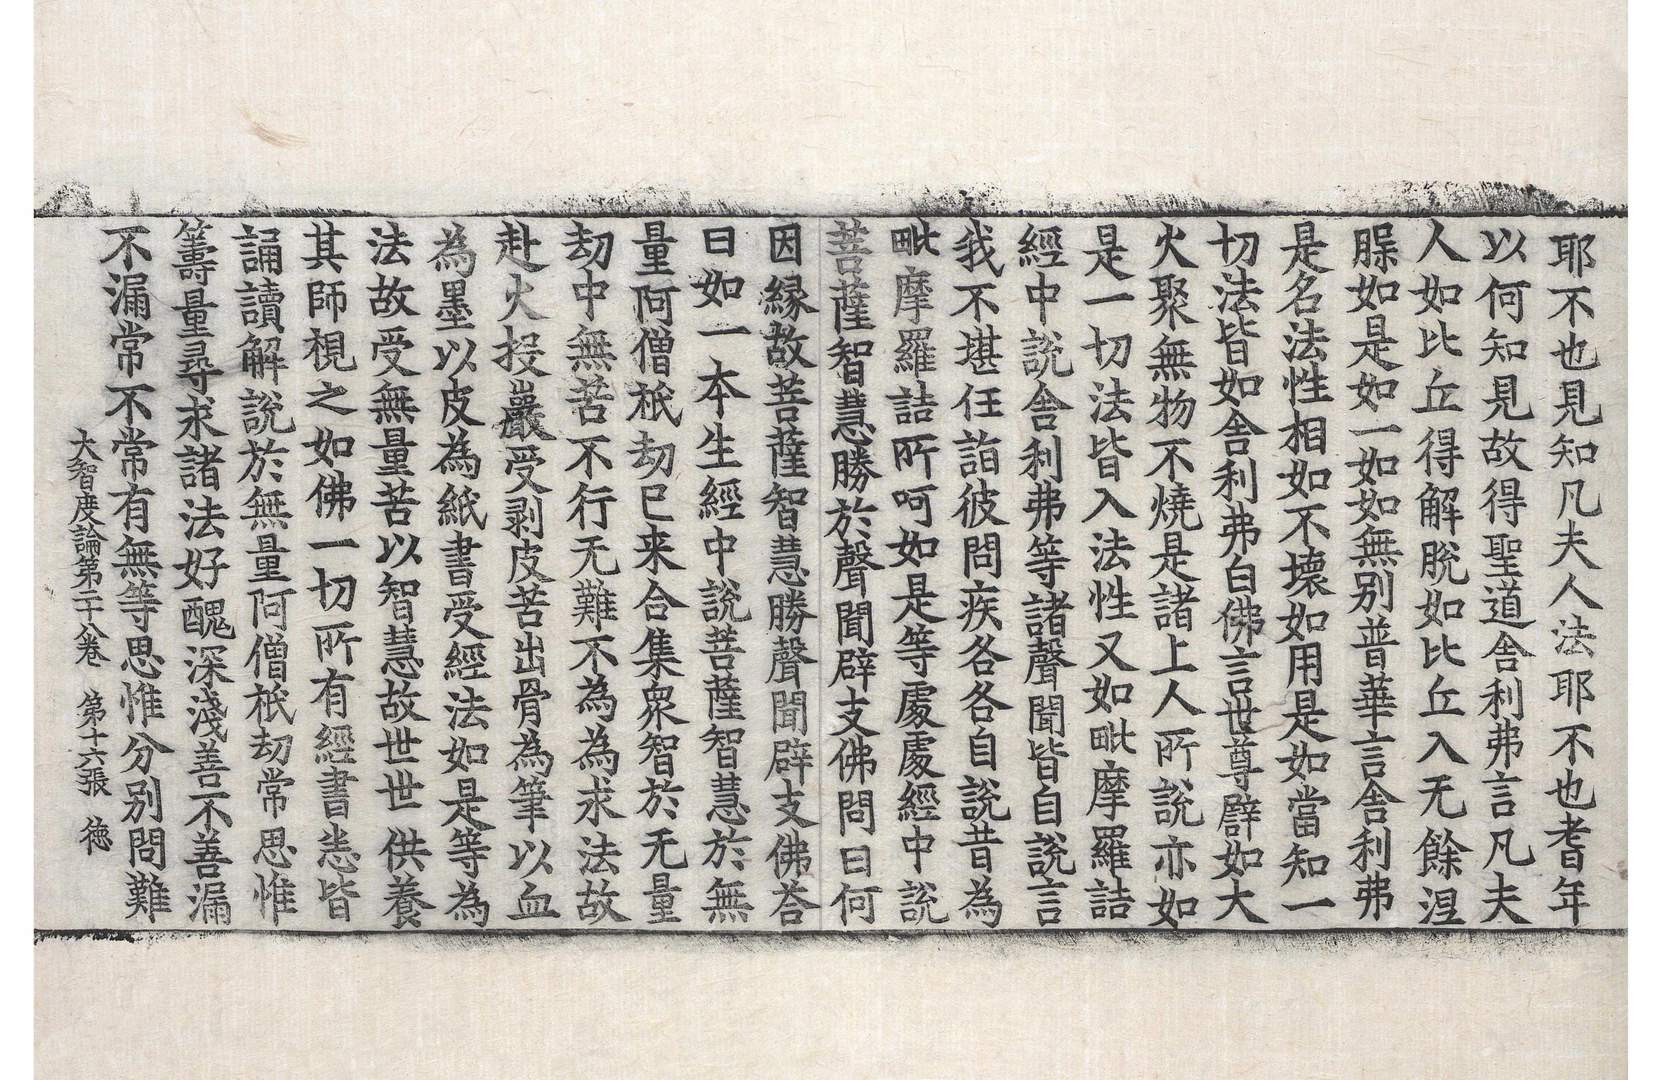 耶不也見知凡夫人法耶不也耆年
以何知見故得聖道舍利弗言凡夫
人如比丘得解脫如比丘入无餘涅
如是如一如如無别普華言舍利弗
是名法性相如不壞如用是如當知一
切法皆如舍利弗白佛言世尊譬如大
火聚無物不燒是諸上人所說亦如
是一切法皆入法性又如毗摩羅詰
經中說舍利弗等諸聲聞皆自說言
我不堪任詣彼問疾各各自說昔為
毗摩羅詰所呵如是等處處經中說
菩薩智慧勝於聲聞辟支佛問曰何
因緣故菩薩智慧勝聲聞辟支佛荅
曰如一本生經中說菩薩智慧於無
量阿僧祇劫已来合集衆智於无量
劫中無苦不行无難不為為求法故
赴火投巖受剥皮苦出骨為筆以血
為墨以皮為紙書受經法如是等為
法故受無量苦以智慧故世世供養
其師視之如佛一切所有經書悉皆
誦讀解說於無量阿僧祇劫常思惟
籌量尋求諸法好醜深淺善不善漏
不漏常不常有無等思惟分别問難
大智度論第二十八卷 第十六張 徳